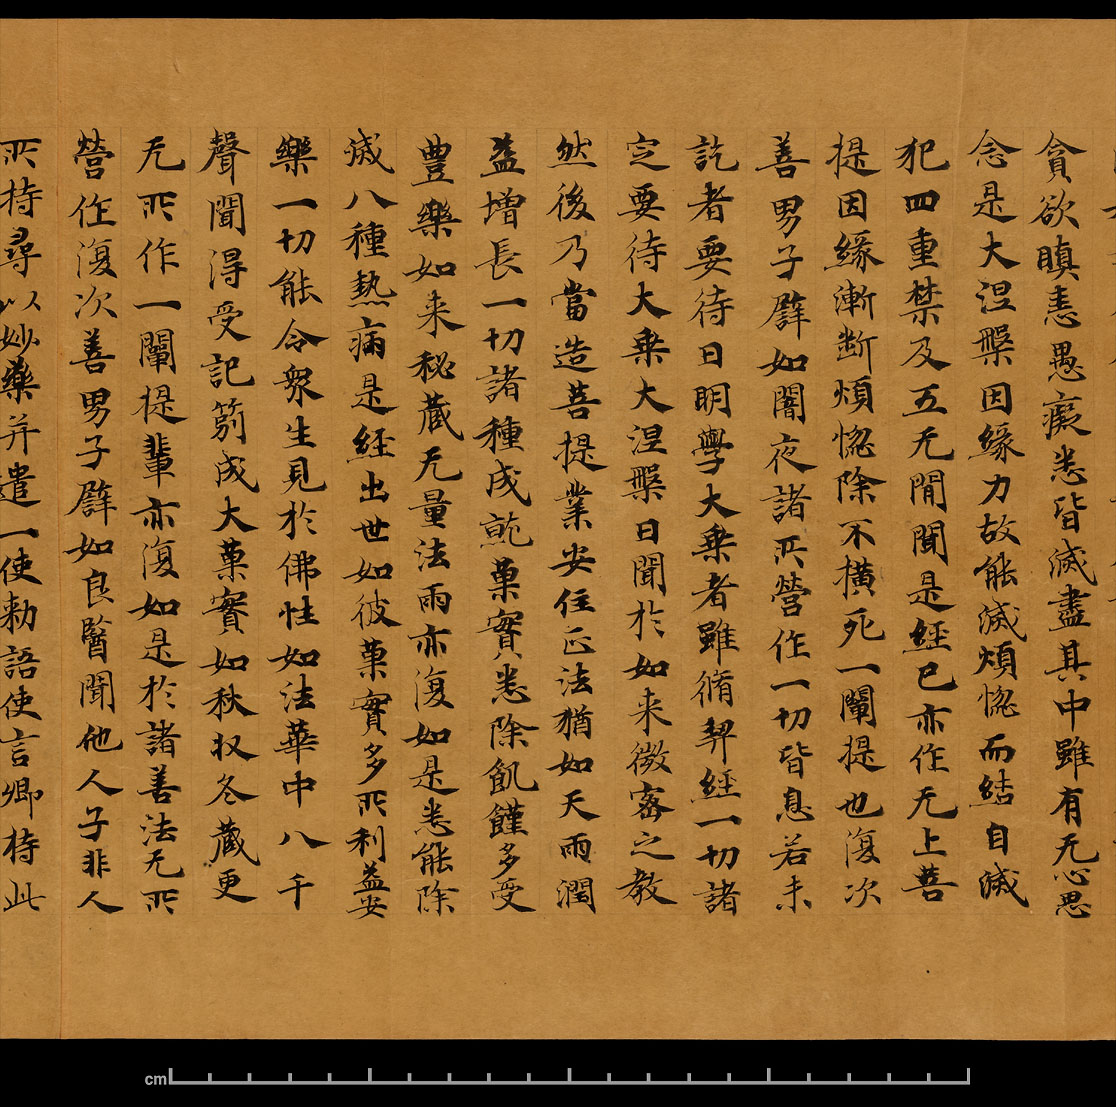 貪欲瞋恚愚癡悉皆滅盡其中雖有无心思
念是大涅槃因緣力故能滅煩惱而結自滅
犯四重禁及五无間聞是經已亦作无上菩
提因緣漸断煩惱除不橫死一闡提也復次
善男子譬如闇夜諸所營作一切皆息若未
訖者要待日明學大乗者雖脩契經一切諸
定要待大乗大涅槃日聞於如来微密之教
然後乃當造菩提業安住正法猶如天雨潤
益增長一切諸種成就菓實悉除飢饉多受
豊樂如来秘藏无量法雨亦復如是悉能除
滅八種熱病是經出世如彼菓實多所利益安
樂一切能令衆生見於佛性如法華中八千
聲聞得受記莂成大菓實如秋收冬藏更
无所作一闡提輩亦復如是於諸善法无所
營作復次善男子譬如良醫聞他人子非人
所持尋以妙藥并遣一使勑語使言卿持此
cm